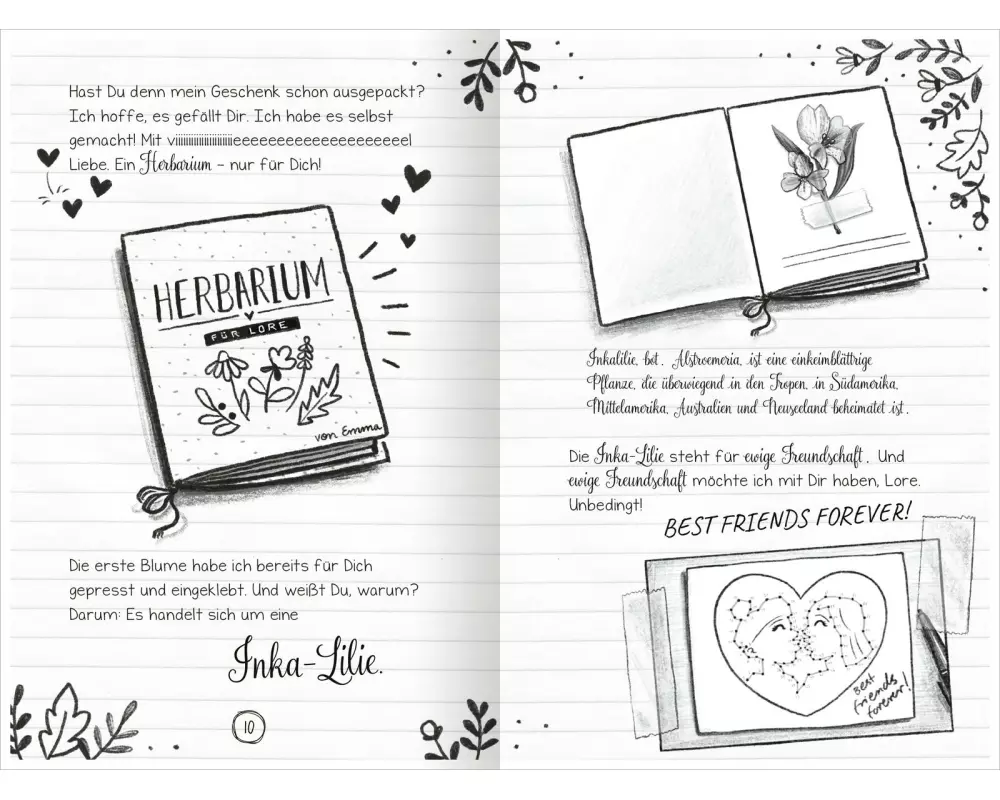 Hast Du denn mein Geschenk schon ausgepackt?
Ich hoffe, es gefällt Dir. Ich habe es selbst
gemacht! Mit viiiiiiiiiiiiiiiiiiiieeeeeeeeeeeeeeeeeeeeel
Liebe. Ein Herbarium – nur für Dich!
HERBARIUM
FÜR LORE
von Emma
Die erste Blume habe ich bereits für Dich
gepresst und eingeklebt. Und weißt Du, warum?
Darum: Es handelt sich um eine
Inka-Lilie.
10
Inkalilie, bot. Alstroemeria, ist eine einkeimblättrige
Pflanze, die überwiegend in den Tropen, in Südamerika,
Mittelamerika, Australien und Neuseeland beheimatet ist.
Die Inka-Lilie steht für ewige Freundschaft. Und
ewige Freundschaft möchte ich mit Dir haben, Lore.
Unbedingt!
BEST FRIENDS FOREVER!
Best
friends
forever!